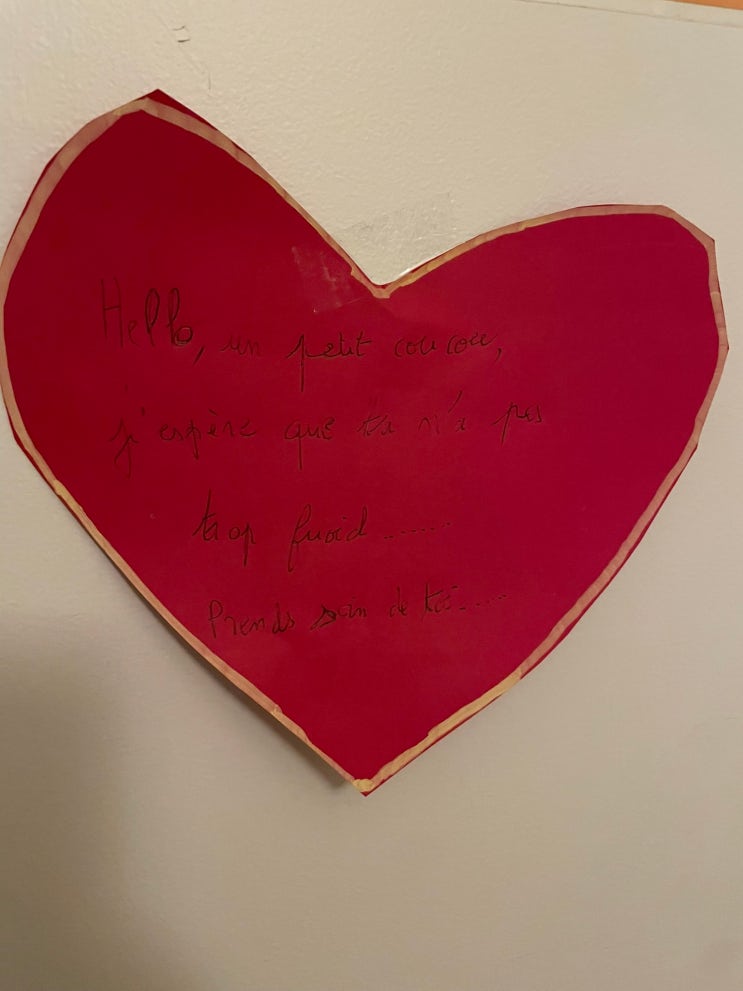 Hello, un petit coucou,
j'espère que ta n'a pas
trop froid ......
Prends soin de toi.....